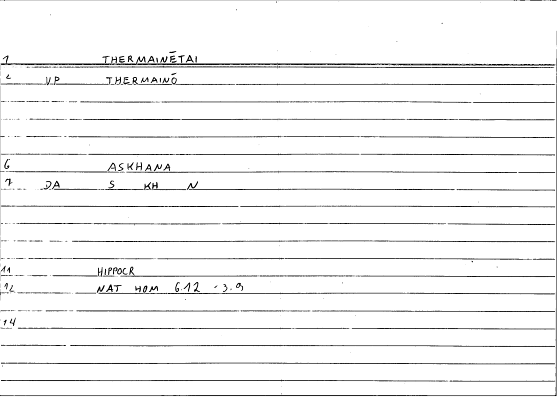 1 THERMAINĒTAI
2 VP THERMAINŌ
6 ASKHANA
7 DA S KH N
11 HIPPOCR
12 NAT HOM 6.12 - 3.9
14